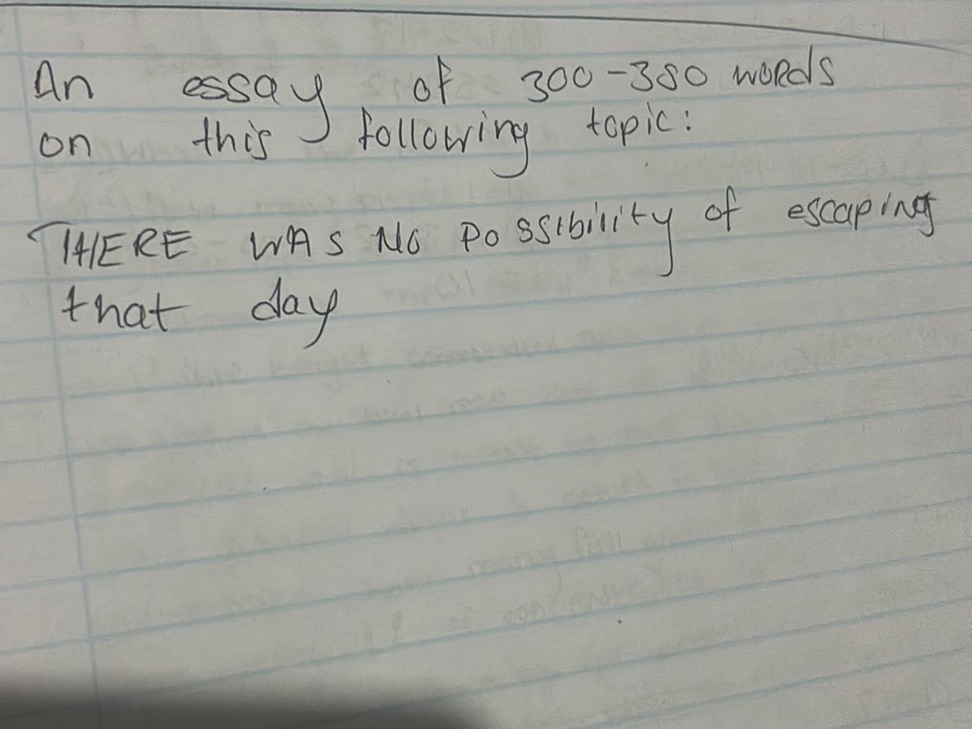 An essay of 300-350 words
on this following topic:
THERE WAS NO POSSIBILITY of escaping
that day